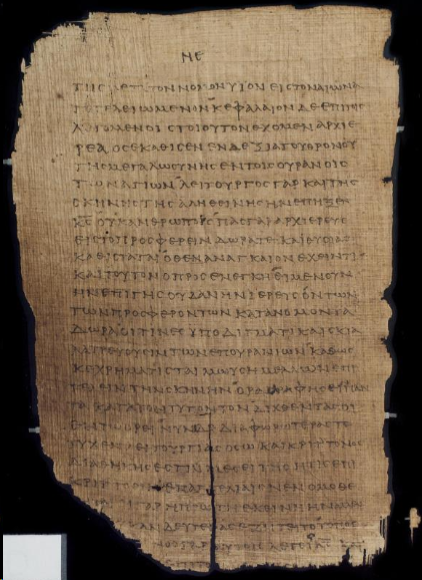 ΝΕ
ΤΗC ΜΕΤΑ ΤΟΝ ΝΟΜΟΝ ΥΙΟΝ ΕΙC ΤΟΝ ΑΙΩΝΑ
ΤΕΤΕΛΕΙΩΜΕΝΟΝ ΚΕΦΑΛΑΙΟΝ ΔΕ ΕΠΙ ΤΟΙC
ΛΕΓΟΜΕΝΟΙC ΤΟΙΟΥΤΟΝ ΕΧΟΜΕΝ ΑΡΧΙΕ
ΡΕΑ ΟC ΕΚΑΘΙCΕΝ ΕΝ ΔΕΞΙΑ ΤΟΥ ΘΡΟΝΟΥ
ΤΗC ΜΕΓΑΛΩCΥΝΗC ΕΝ ΤΟΙC ΟΥΡΑΝΟΙC
ΤΩΝ ΑΓΙΩΝ ΛΕΙΤΟΥΡΓΟC ΓΑΡ ΚΑΙ ΤΗC
CΚΗΝΗC ΤΗC ΑΛΗΘΕΙΝΗC ΗΝ ΕΠΗΞΕΝ
ΚC ΟΥΚ ΑΝΘΡΩΠΟC ΠΑC ΓΑΡ ΑΡΧΙΕΡΕΥC
ΕΙC ΤΟ ΠΡΟCΦΕΡΕΙΝ ΔΩΡΑ ΤΕ ΚΑΙ ΘΥCΙΑC
ΚΑΘΙCΤΑΤΑΙ ΟΘΕΝ ΑΝΑΓΚΑΙΟΝ ΕΧΕΙΝ ΤΙ
ΚΑΙ ΤΟΥΤΟΝ Ο ΠΡΟCΕΝΕΓΚΗ ΕΙ ΜΕΝ ΟΥΝ
ΗΝ ΕΠΙ ΓΗC ΟΥΔ ΑΝ ΗΝ ΙΕΡΕΥC ΟΝΤΩΝ
ΤΩΝ ΠΡΟCΦΕΡΟΝΤΩΝ ΚΑΤΑ ΝΟΜΟΝ ΤΑ
ΔΩΡΑ ΟΙΤΙΝΕC ΥΠΟΔΙΓΜΑΤΙ ΚΑΙ CΚΙΑ
ΛΑΤΡΕΥΟΥCΙΝ ΤΩΝ ΕΠΟΥΡΑΝΙΩΝ ΚΑΘΩC
ΚΕΧΡΗΜΑΤΙCΤΑΙ ΜΩΥCΗC ΜΕΛΛΩΝ ΕΠΙ
ΤΕΛΕΙΝ ΤΗΝ CΚΗΝΗΝ ΟΡΑ ΓΑΡ ΦΗCΙ
ΤΥΠΟΝ ΤΟΝ ΔΙΧΘΕΝΤΑ CΟΙ
ΕΝ ΤΩ ΟΡΕΙ ΝΥΝ ΔΕ ΔΙΑΦΟΡΩΤΕΡΑC ΤΕ
ΤΥΧΕΝ ΛΕΙΤΟΥΡΓΙΑC ΟCΩ ΚΑΙ ΚΡΙΤΤΟΝΟC
ΔΙΑΘΗΚΗC ΕCΤΙΝ ΜΕCΕΙΤΗC ΕΠΙ
ΝΕΝΟΜΟΘΕ
ΓΑΡ Η ΠΡΩΤΗ ΕΚΕΙΝΗ ΗΝ
ΑΝ ΔΕΥΤΕΡΑC ΕΖΗΤΕΙΤΟ ΤΟΠΟC
ΛΕΓΕΙ